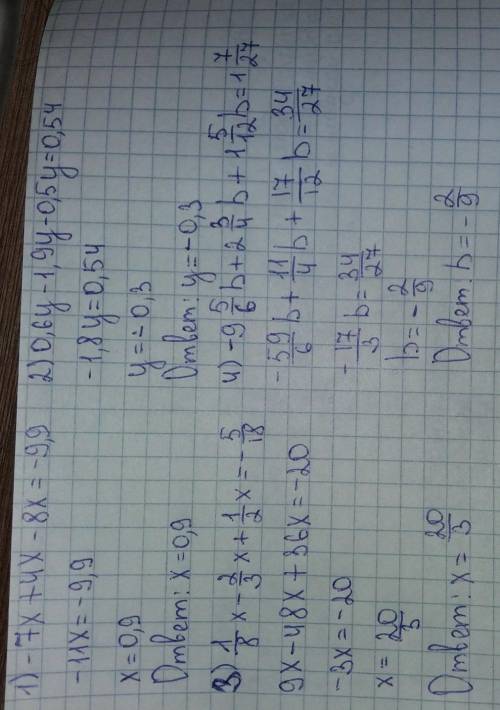 1) -7x+4x-8x=-9,9
-11x=-9,9
x=0,9
Ответ: x=0,9
2) 0,6y-1,9y-0,5y=0,54
-1,8y=0,54
y=-0,3
Ответ: y=-0,3
3) 1/8 x - 2/3 x + 1/2 x = - 5/18
9x-48x+36x=-20
-3x=-20
x= 20/3
Ответ: x= 20/3
4) -9 5/6 b + 2 3/4 b + 1 5/12 b = 1 7/27
- 59/6 b + 11/4 b + 17/12 b = 34/27
- 17/3 b = 34/27
b = - 2/9
Ответ: b = - 2/9